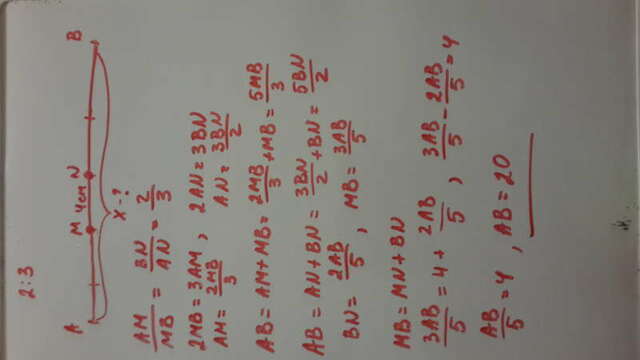 2:3
A M 4см N B
X-?
AM/MB = BN/AN = 2/3
2MB=3AM, 2AN=3BN
AM= 2MB/3 AN= 3BN/2
AB= AM+MB= 2MB/3 +MB= 5MB/3
AB= AN+BN= 3BN/2 +BN= 5BN/2
BN= 2AB/5, MB= 3AB/5
MB= MN+BN
3AB/5 = 4+ 2AB/5, 3AB/5 - 2AB/5 = 4
AB/5 = 4, AB=20